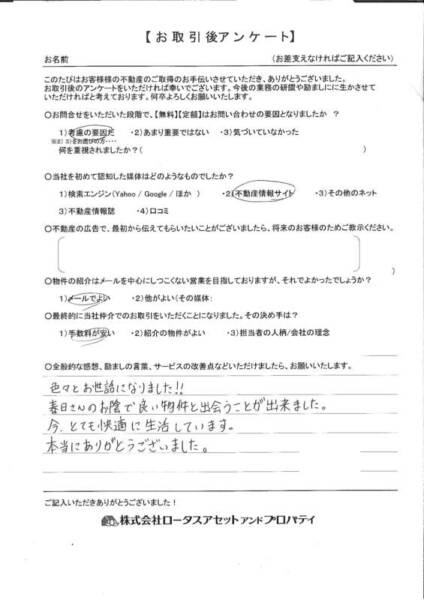 【お取引後アンケート】
お名前 (お差支えなければご記入ください)
このたびはお客様様の不動産のご取得のお手伝いさせていただき、ありがとうございました。
お取引後のアンケートをいただければ幸いでございます。今後の業務の研鑽や励ましにに生かさせて
いただければと考えております。何卒よろしくお願いいたします。
〇お問合せをいただいた段階で、【無料】【定額】はお問い合わせの要因となりましたか ?
1)考慮の要因だ ・2)あまり重要ではない ・3)気づいていなかった
何を重視されましたか？( )
〇当社を初めて認知した媒体はどのようなものでしたか?
1)検索エンジン(Yahoo / Google / ほか ) ・2)不動産情報サイト ・3)その他のネット
3)不動産情報誌 ・4)口コミ
〇不動産の広告で、最初から伝えてもらいたいことがございましたら、将来のお客様のためご教示ください。
〇物件の紹介はメールを中心にしつこくない営業を目指しておりますが、それでよかったでしょうか ?
1)メールでよい ・2)他がよい(その媒体:
〇最終的に当社仲介でのお取引をいただくことになりました。その決め手は?
1)手数料が安い ・2)紹介の物件がよい ・3)担当者の人柄/会社の理念
〇全般的な感想、励ましの言葉、サービスの改善点などいただけましたら、お願いいたします。
色々とお世話になりました!!
春日さんのお陰で良い物件と出会うことが出来ました。
今、とても快適に生活しています。
本当にありがとうございました。
ご記入いただきありがとうございました!
株式会社ロータスアセットアンドプロパティ